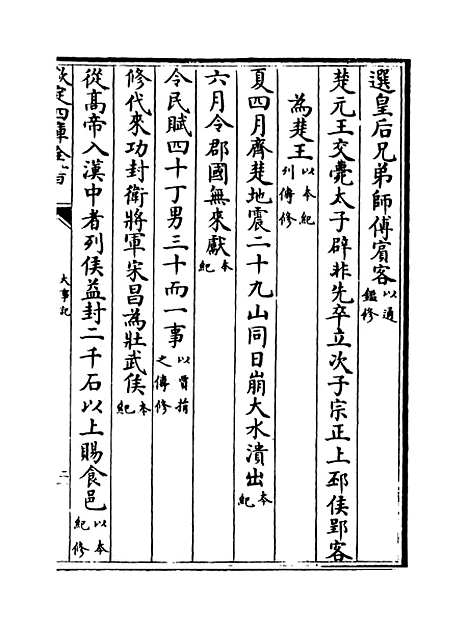 選皇后兄弟師傅賓客以通鑑修
楚元王交薨太子辟非先卒立次子宗正上邳侯郢客
為楚王以本紀列傳修
夏四月齊楚地震二十九山同日崩大水潰出本紀
六月令郡國無來獻本紀
令民賦四十丁男三十而一事以賈捐之傳修
修代來功封衛將軍宋昌為壯武侯本紀
從髙帝入漢中者列侯益封二千石以上賜食邑以本紀修
欽定四庫全書
大事記
二